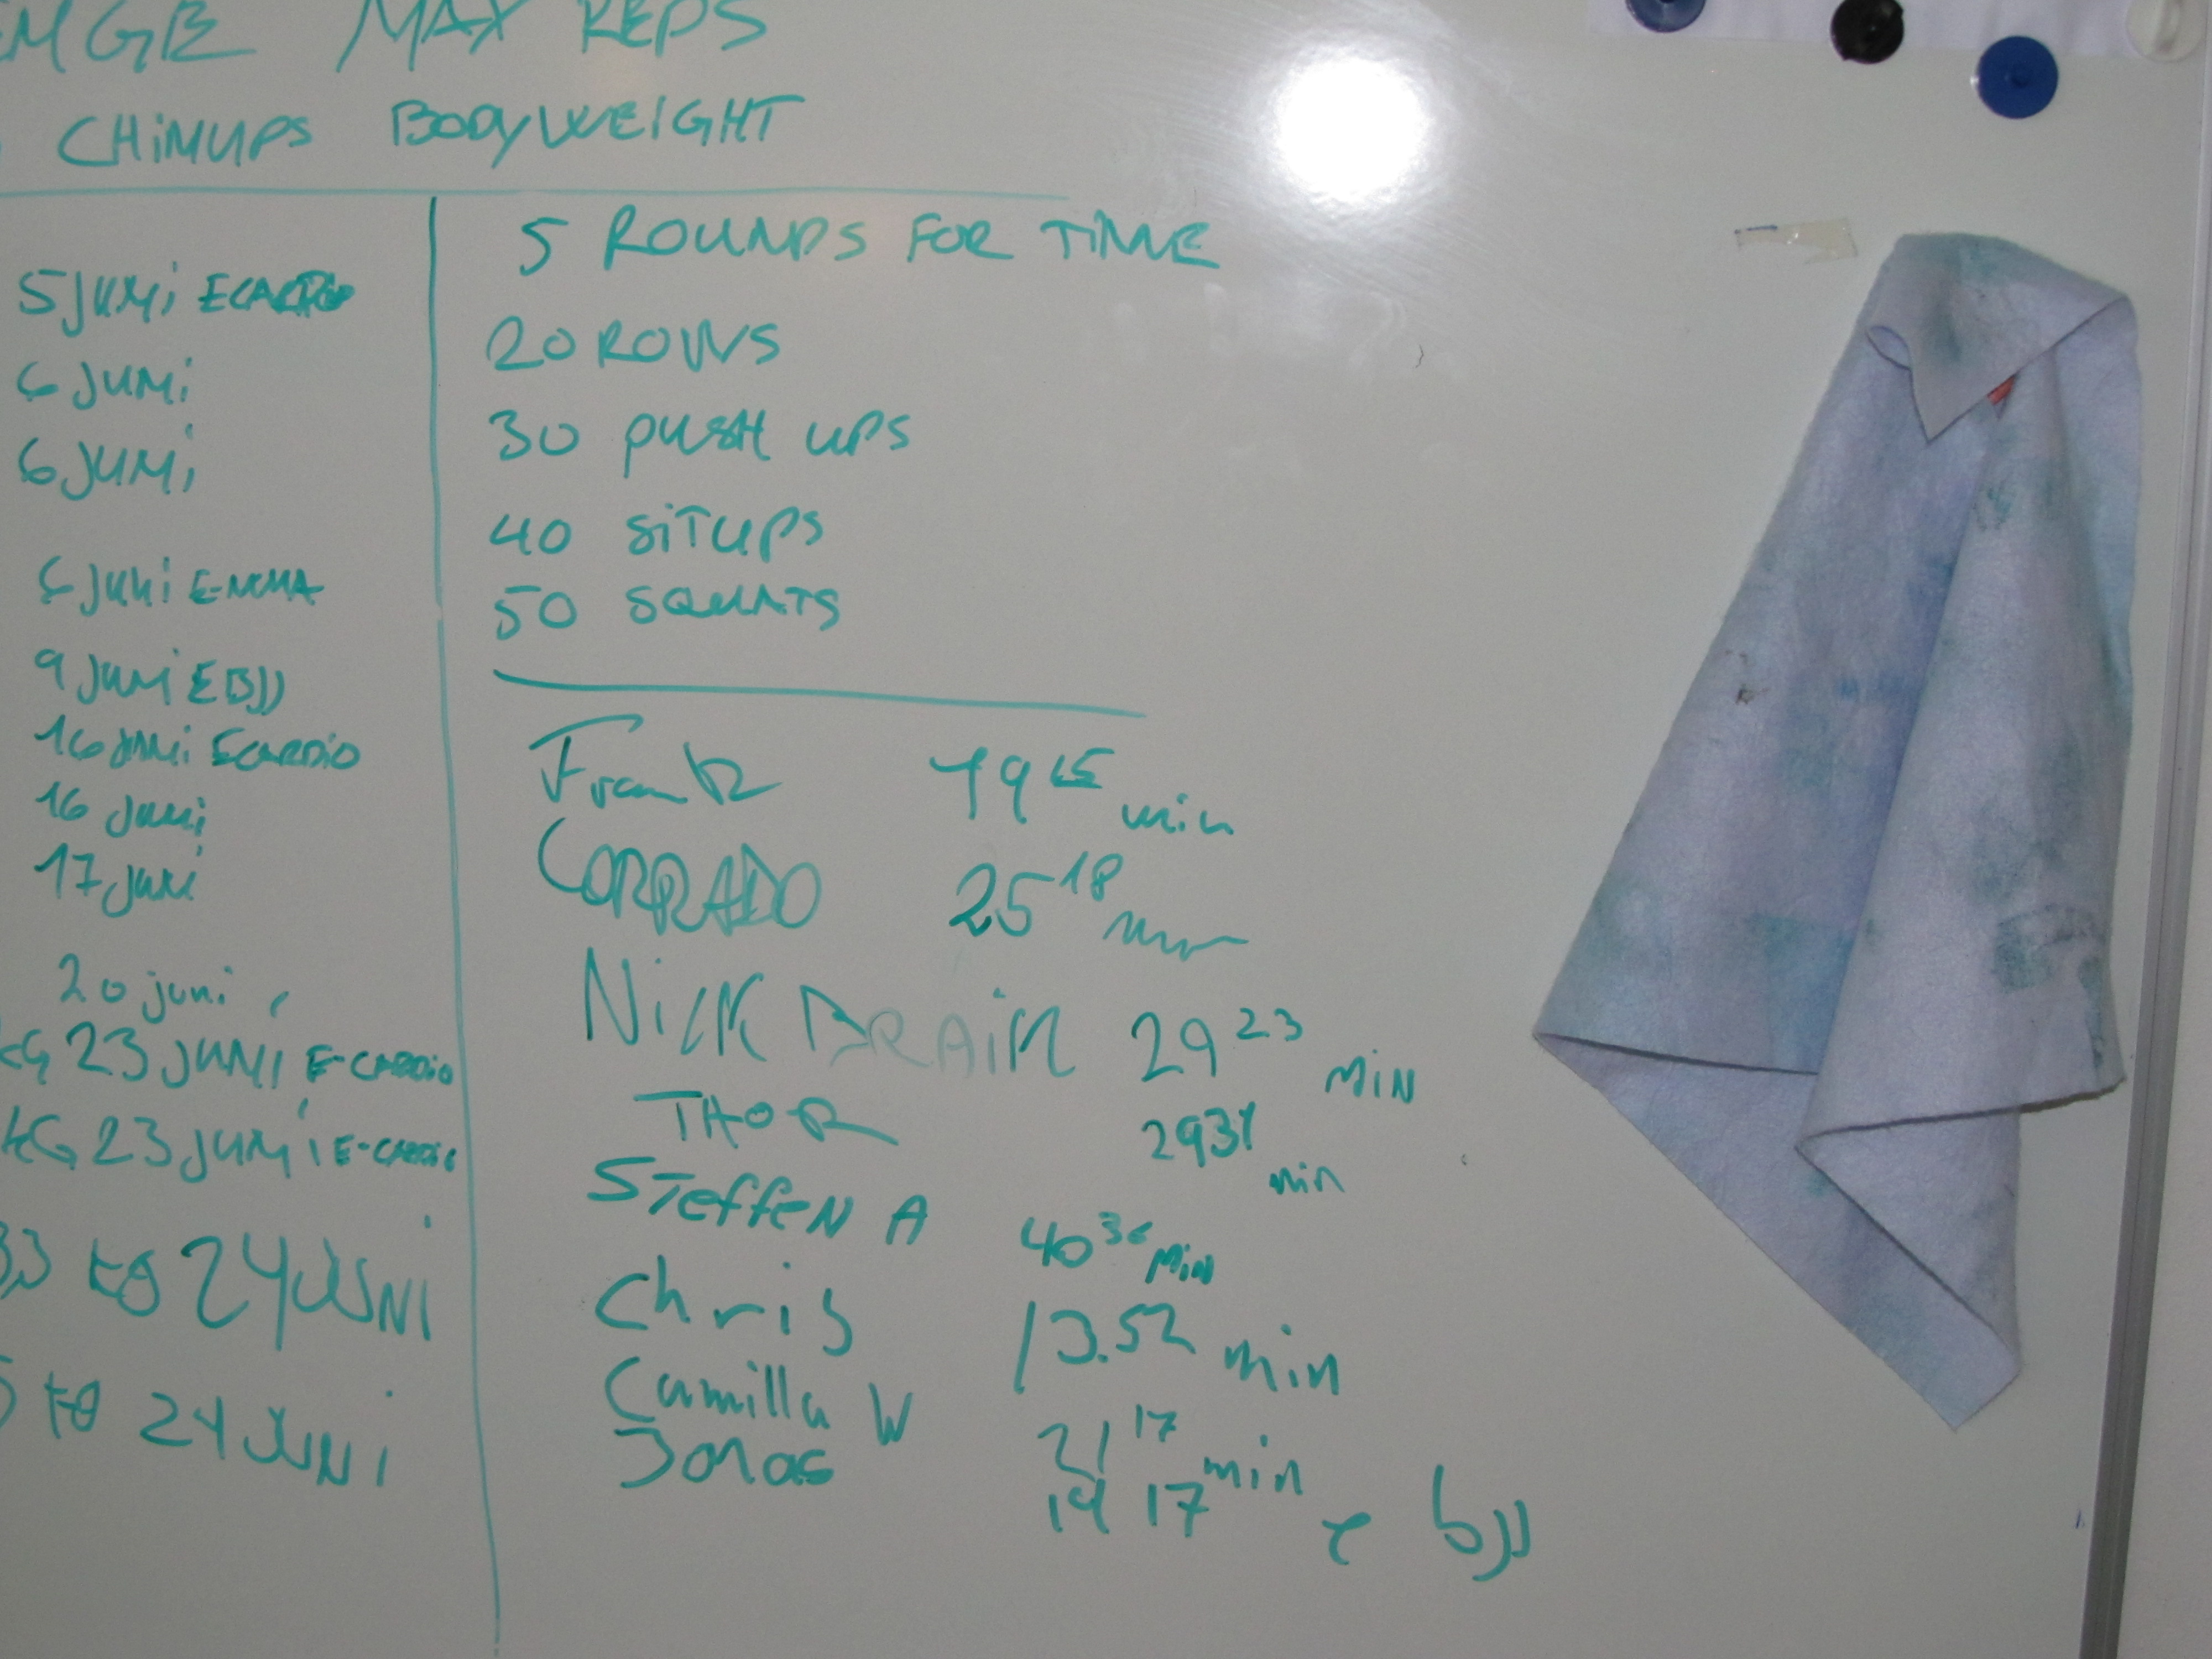 MAX REPS
CHINUPS BODYWEIGHT
5 JUNI ECARDIO
6 JUNI
6 JUNI
6 JUNI E-MMA
9 JUNI E BJJ
16 JUNI ECARDIO
16 juni
17 juni
20 juni
KG 23 JUNI E-CARDIO
KG 23 JUNI E-CARDIO
KG 24 JUNI
KG 24 JUNI
5 ROUNDS FOR TIME
20 ROWS
30 PUSH UPS
40 SITUPS
50 SQUATS
19 15 min
CORRADO 25 18 min
NICK BRAIN 29 23 MIN
THOR 29 31 min
STEFFEN A 40 36 MIN
Chris 13.52 min
Camilla W 21 17 min
Jonas 19 17 e bjj